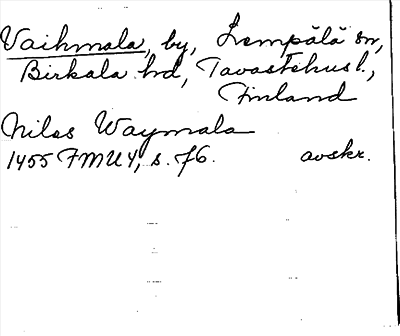 Vaihmala, by, Lempälä sn,
Birkala hd, Tavastehus l.,
Finland
Nilos Waymala
1455 FMU 4, s. 76. avskr.